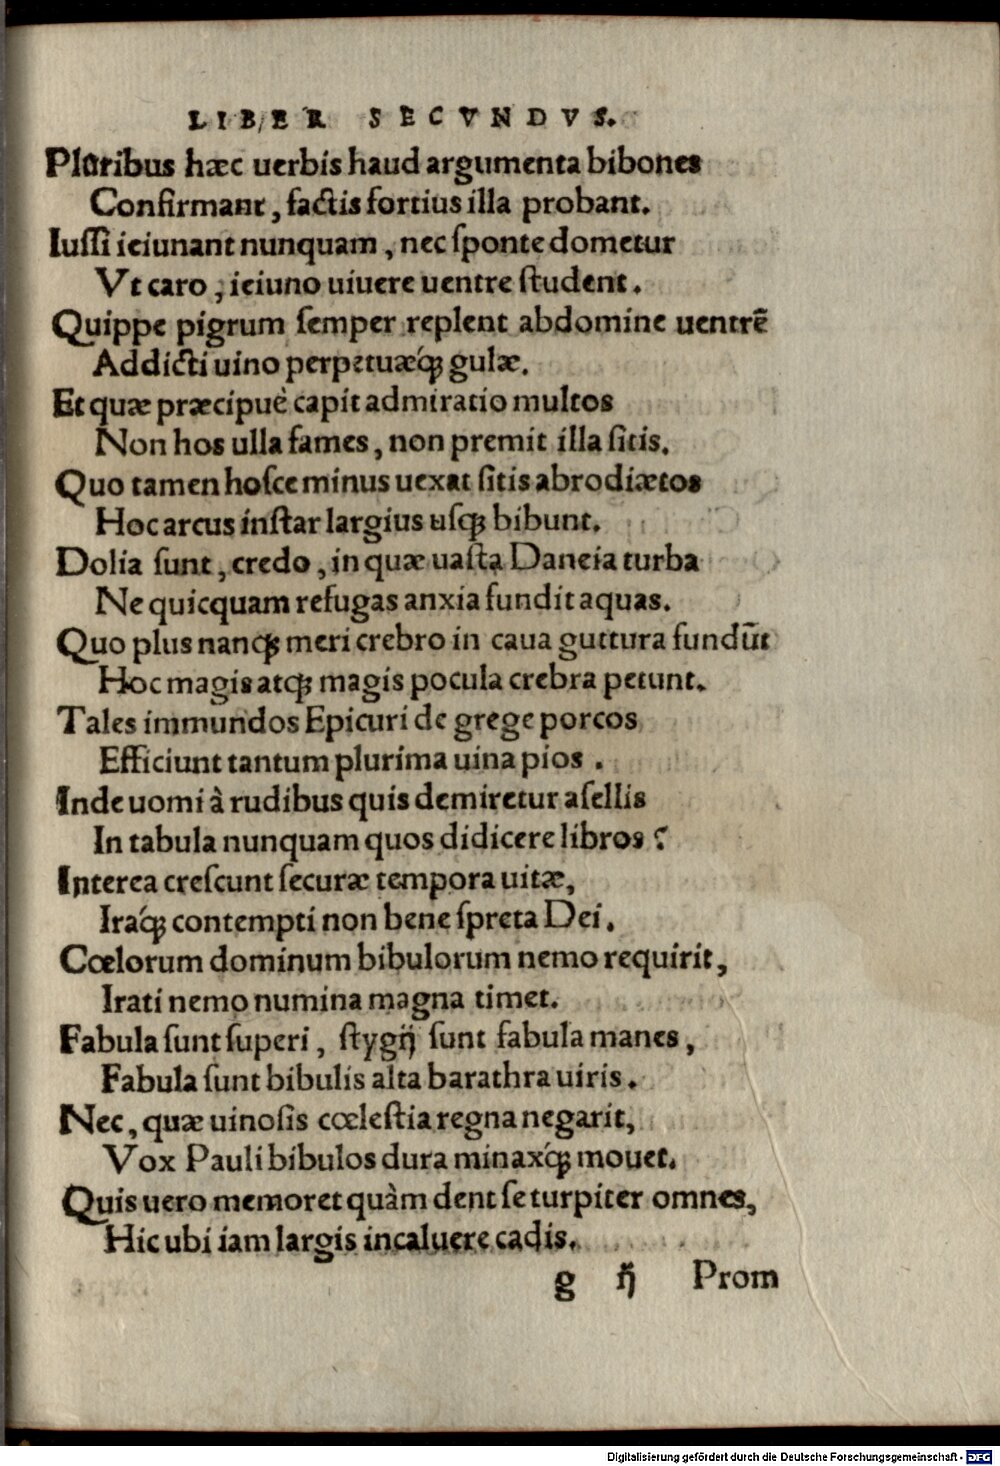 LIBER SECVNDVS.
Pluribus hæc uerbis haud argumenta bibones
Confirmant, factis fortius illa probant.
Iuſſi ieiunant nunquam, nec ſponte dometur
Vt caro, ieiuno uiuere uentre ſtudent.
Quippe pigrum ſemper replent abdomine uentrẽ
Addicti uino perpetuæq́ꝫ gulæ.
Et quæ præcipuè capit admiratio multos
Non hos ulla fames, non premit illa ſitis.
Quo tamen hoſce minus uexat ſitis abrodiætos
Hoc arcus inſtar largius uſqꝫ bibunt.
Dolia ſunt, credo, in quæ uaſta Daneia turba
Ne quicquam refugas anxia fundit aquas.
Quo plus nanqꝫ meri crebro in caua guttura fundũt
Hoc magis atqꝫ magis pocula crebra petunt.
Tales immundos Epicuri de grege porcos
Efficiunt tantum plurima uina pios.
Inde uomi à rudibus quis demiretur aſellis
In tabula nunquam quos didicere libros?
Interea creſcunt ſecuræ tempora uitæ,
Iraq́ꝫ contempti non bene ſpreta Dei.
Cœlorum dominum bibulorum nemo requirit,
Irati nemo numina magna timet.
Fabula ſunt ſuperi, ſtygij ſunt fabula manes,
Fabula ſunt bibulis alta barathra uiris.
Nec, quæ uinoſis cœleſtia regna negarit,
Vox Pauli bibulos dura minaxq́ꝫ mouet.
Quis uero memoret quàm dent ſe turpiter omnes,
Hic ubi iam largis incaluere cadis.
g ij Prom
Digitalisierung gefördert durch die Deutsche Forschungsgemeinschaft - DFG